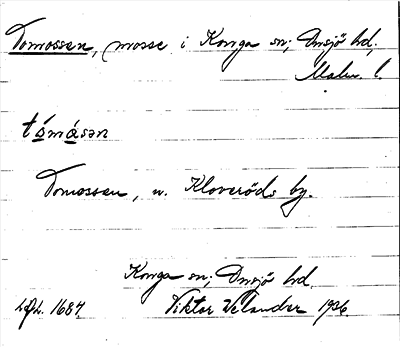 Tomossen, mosse i Konga sn; Onsjö hd,
Malm. l.
tómo̱sən
Tomossen, n. Kloveröds by.
Konga sn; Onsjö hd.
1684. Viktor Velander 1936